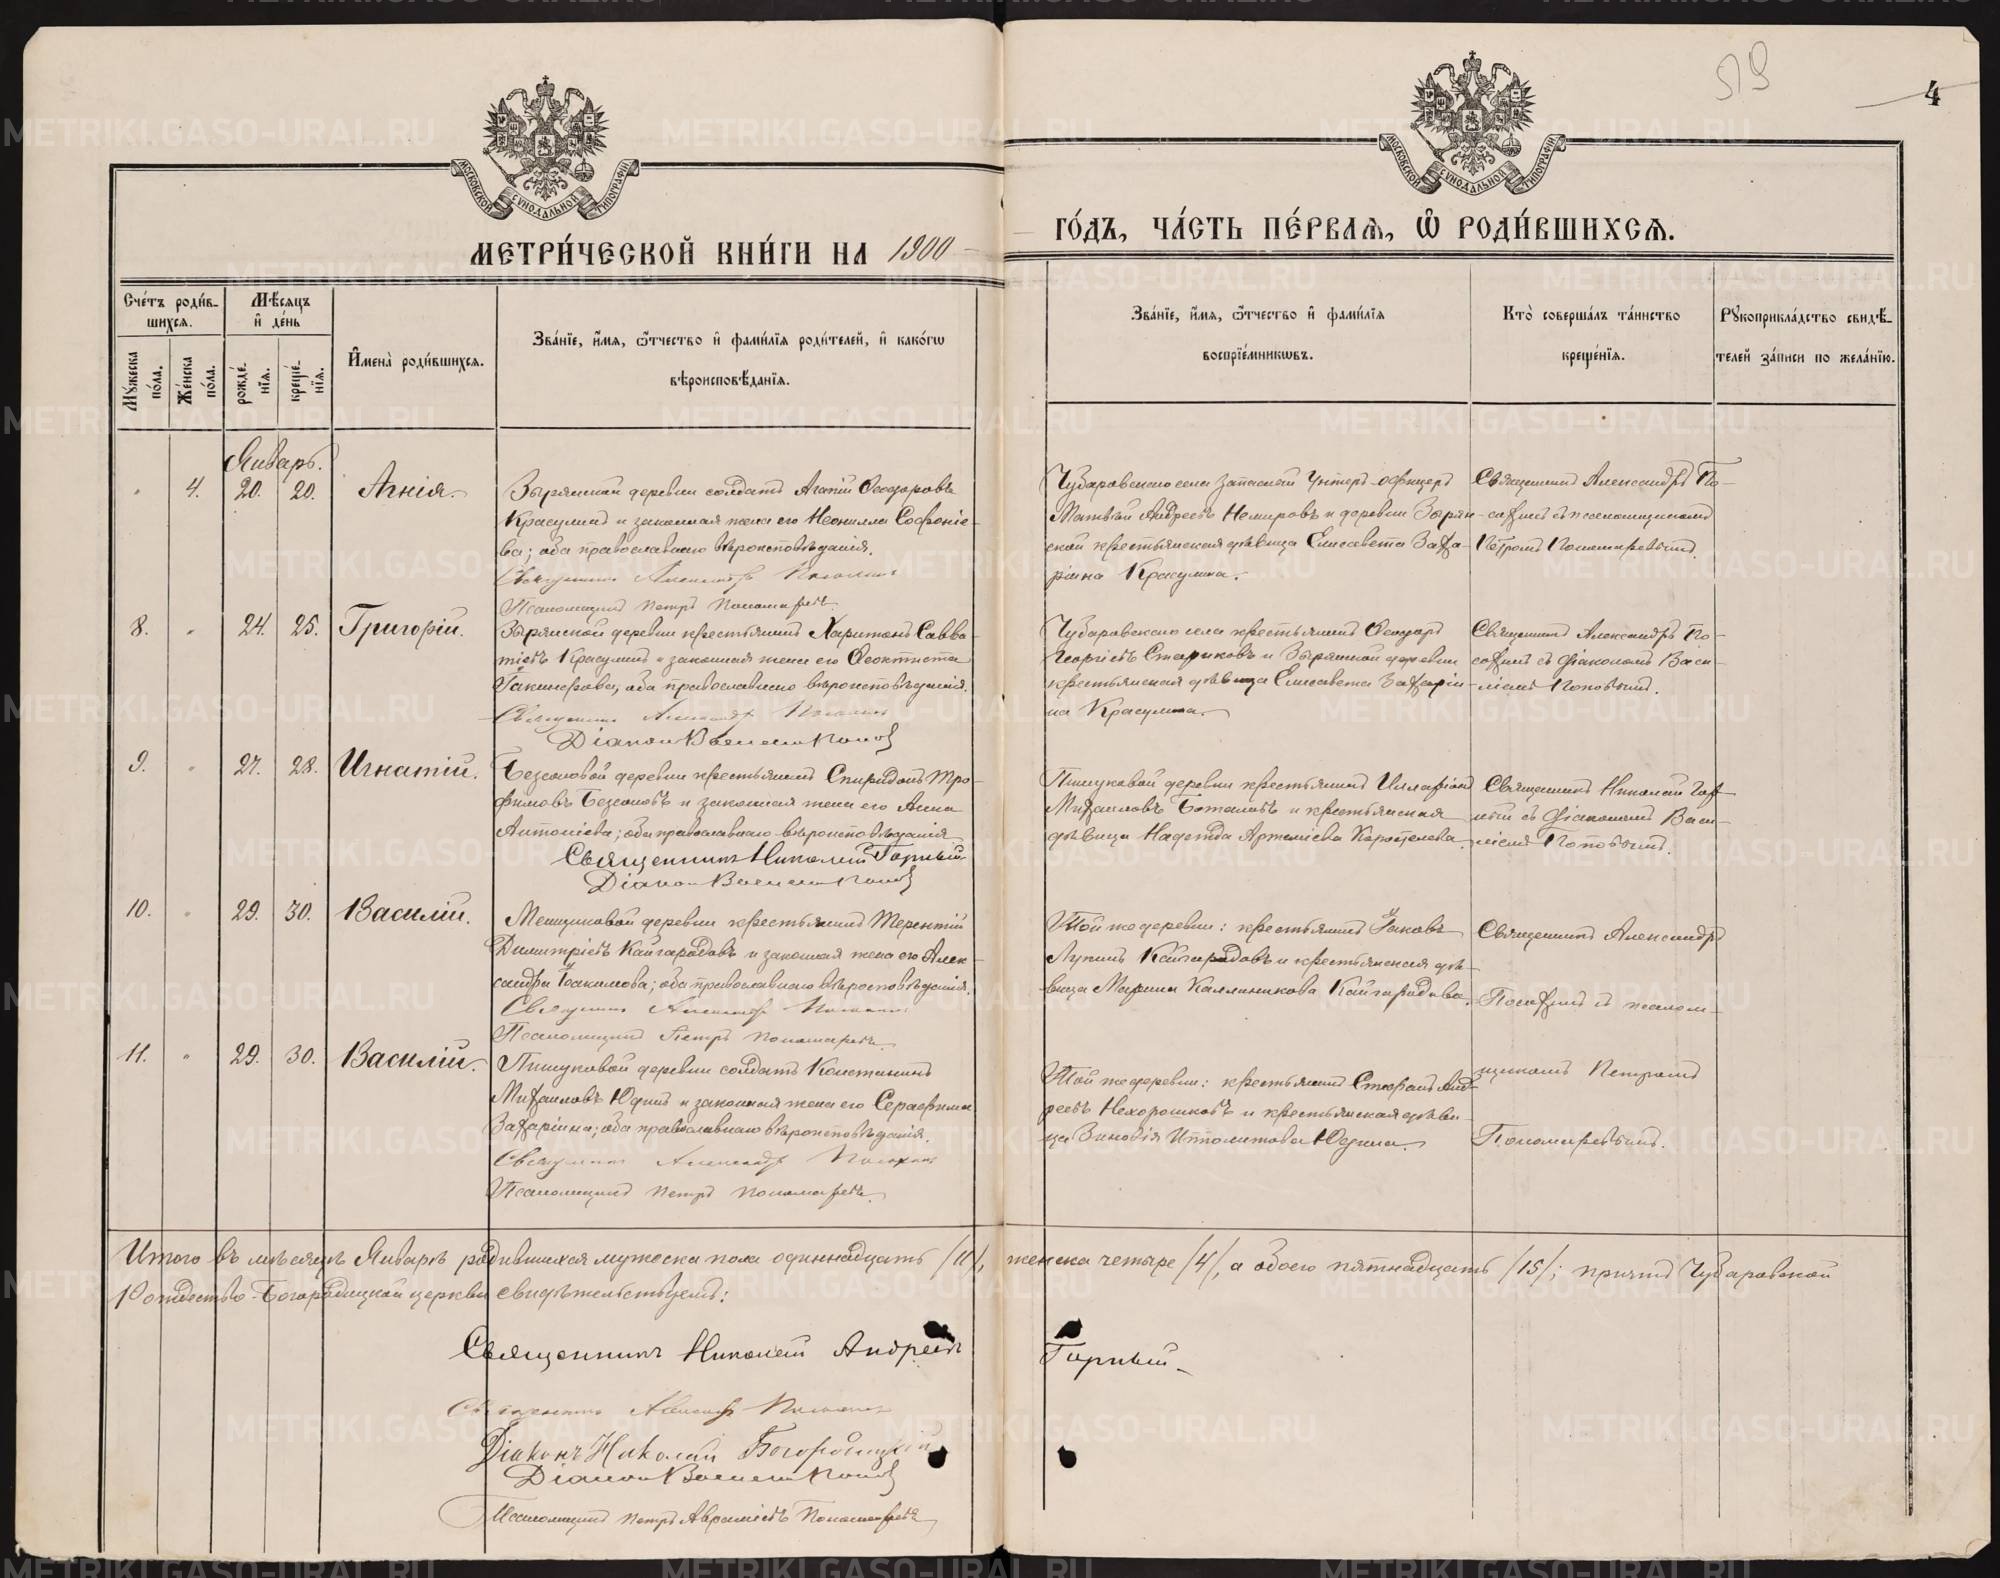 59
4
МОСКОВСКОЙ СѴНОДАЛЬНОЙ ТИПОГРАФІИ
МОСКОВСКОЙ СѴНОДАЛЬНОЙ ТИПОГРАФІИ
МЕТРИ́ЧЕСКОЙ КНИ́ГИ НА 1900
ГО́ДЪ, ЧА́СТЬ ПЕ́РВАѦ, Ѽ РОДИ́ВШИХСѦ.
Сче́тъ роди́в-
шихсѧ.
Мꙋ́жеска по́ла.
Же́нска по́ла.
Мѣ́сѧцъ
и҆ де́нь
рожде́нїѧ.
креще́нїѧ.
И҆мена̀ роди́вшихсѧ.
Зва́нїе, и҆́мѧ, ѻ҆́тчество и҆ фами́лїѧ роди́телей, и҆ како́гѡ
вѣроисповѣ́данїѧ.
Зва́нїе, и҆́мѧ, ѻ҆́тчество и҆ фами́лїѧ
воспрїе́мникѡвъ.
Кто̀ соверша́лъ та́инство
креще́нїѧ.
Рꙋкоприкла́дство свидѣ́-
телей за́писи по жела́нїю.
Январь.
" 4. 20. 20. Агнія.
Зырянской деревни солдатъ Агапій Ѳеодоровъ
Красулинъ и законная жена его Неонилла Софоніе-
ва; оба православнаго вѣроисповѣданія.
Священникъ Александръ Посохинъ
Псаломщикъ Петръ Пономаревъ.
Чубаровскаго села запасной унтеръ-офицеръ
Матвѣй Андреевъ Немировъ и деревни Зырян-
ской крестьянская дѣвица Елисавета Заха-
ріина Красулина.
Священникъ Александръ По-
сохинъ съ псаломщикомъ
Петромъ Пономаревымъ.
8. " 24. 25. Григорій.
Зырянской деревни крестьянинъ Харитонъ Савва-
тіевъ Красулинъ и законная жена его Ѳеоктиста
Іакинфова; оба православнаго вѣроисповѣданія.
Священникъ Александръ Посохинъ
Діаконъ Василій Поповъ
Чубаровскаго села крестьянинъ Ѳеодоръ
Георгіевъ Стариковъ и Зырянской деревни
крестьянская дѣвица Елисавета Захаріи-
на Красулина.
Священникъ Александръ По-
сохинъ съ діакономъ Васи-
ліемъ Поповымъ.
9. " 27. 28. Игнатій.
Безсоновой деревни крестьянинъ Спиридонъ Тро-
фимовъ Безсоновъ и законная жена его Анна
Антоніева; оба православнаго вѣроисповѣданія
Священникъ Николай Горный
Діаконъ Василій Поповъ
деревни крестьянинъ Илларіонъ
Михаиловъ и крестьянская
дѣвица Надежда Артеміева
Священникъ Николай Гор-
ный съ діакономъ Васи-
ліемъ Поповымъ.
10. " 29. 30. Василій.
деревни крестьянинъ Терентій
Димитріевъ Кайгородовъ и законная жена его Алек-
сандра Іоакимова; оба православнаго вѣроисповѣданія.
Священникъ Александръ Посохинъ
Псаломщикъ Петръ Пономаревъ.
Той же деревни: крестьянинъ Іаковъ
Лупинъ Кайгородовъ и крестьянская дѣ-
вица Марина Каллиникова Кайгородова.
Священникъ Александръ
Посохинъ съ псалом-
11. " 29. 30. Василій.
деревни солдатъ Константинъ
Михаиловъ Юдинъ и законная жена его Серафима
Захаріина; оба православнаго вѣроисповѣданія.
Священникъ Александръ Посохинъ
Псаломщикъ Петръ Пономаревъ.
Той же деревни: крестьянинъ Стефанъ Анд-
реевъ Нехорошковъ и крестьянская дѣви-
ца Зиновія Ипполитова Юдина.
щикомъ Петромъ
Пономаревымъ.
Итого въ мѣсяцѣ Январѣ родившихся мужеска пола одиннадцать /11/, женска четыре /4/, а обоего пятнадцать /15/; причтъ Чубаровской
Рождество-Богородицкой церкви свидѣтельствуетъ:
Священникъ Николай Андреевъ Горный
Священникъ Александръ Посохинъ
Діаконъ Николай Богородицкій
Діаконъ Василій Поповъ
Псаломщикъ Петръ Аврамьевъ Пономаревъ
METRIKI.GASO-URAL.RU